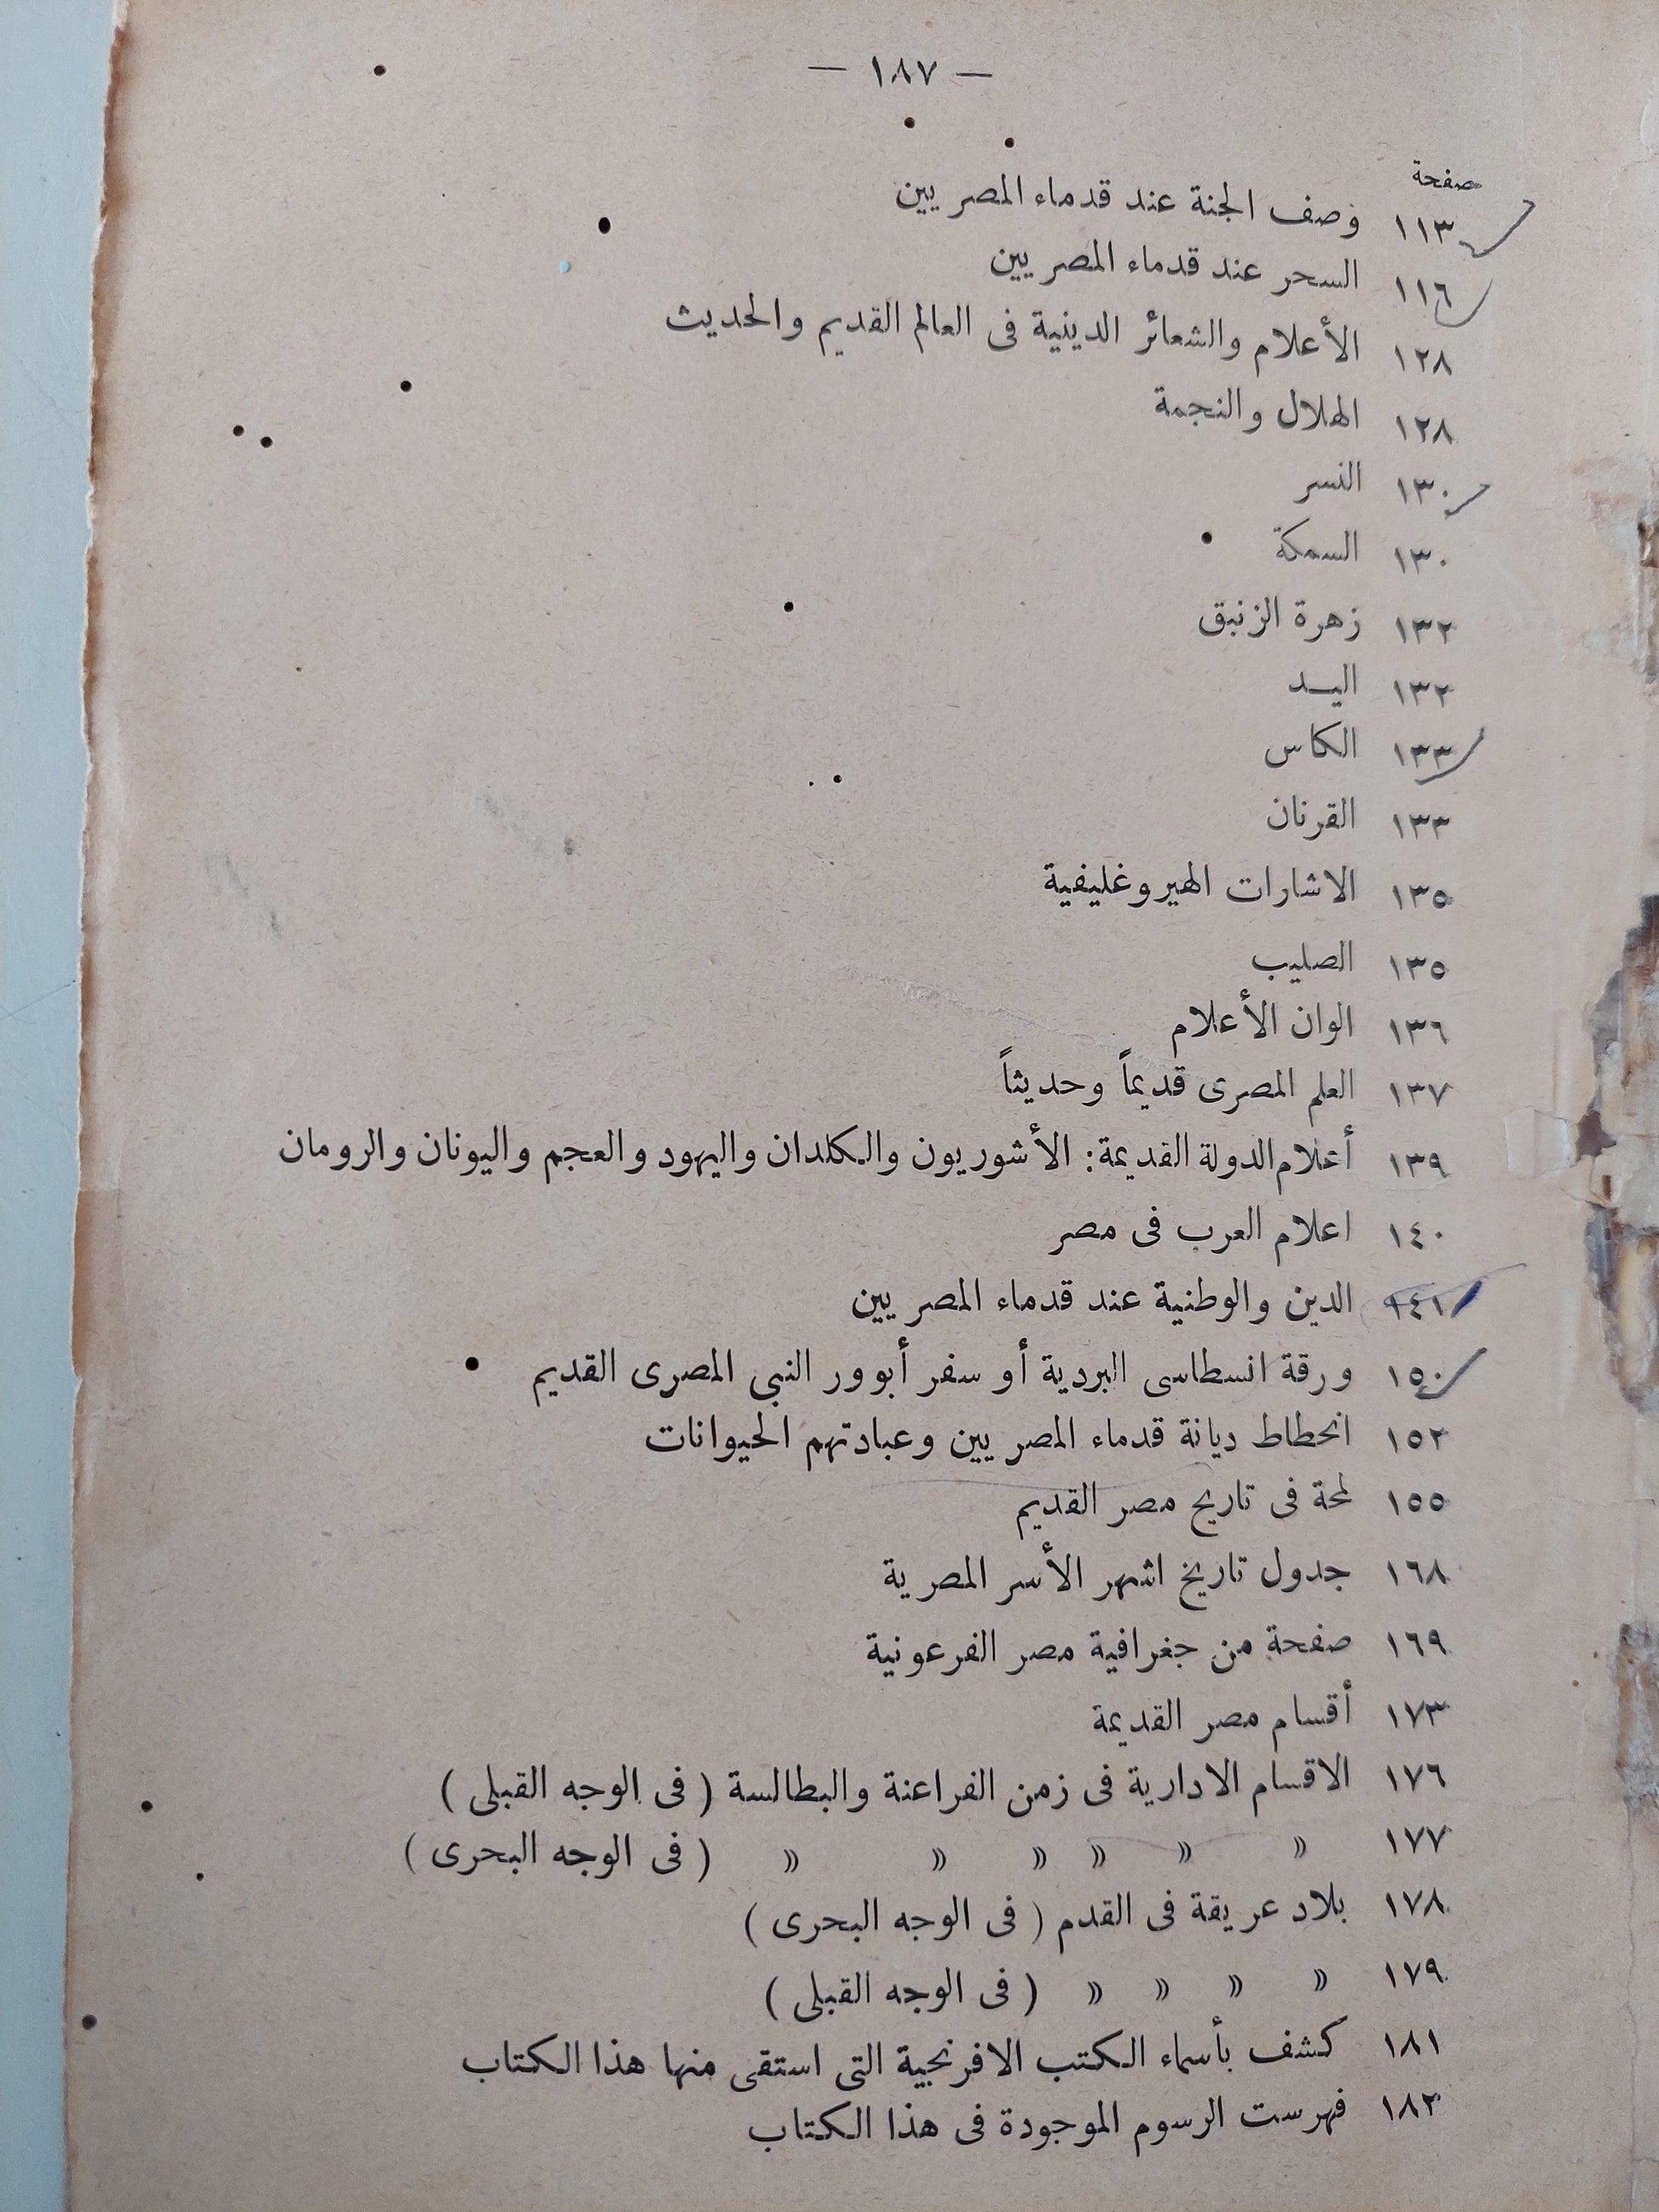 — ١٨٧ —
صفحة
١١٣ وصف الجنة عند قدماء المصريين
١١٦ السحر عند قدماء المصريين
١٢٨ الأعلام والشعائر الدينية فى العالم القديم والحديث
١٢٨ الهلال والنجمة
١٣٠ النسر
١٣٠ السمكة
١٣٢ زهرة الزنبق
١٣٢ اليـد
١٣٣ الكاس
١٣٣ القرنان
١٣٥ الاشارات الهيروغليفية
١٣٥ الصليب
١٣٦ الوان الأعلام
١٣٧ العلم المصرى قديماً وحديثاً
١٣٩ أعلام الدولة القديمة: الأشوريون والكلدان واليهود والعجم واليونان والرومان
١٤٠ اعلام العرب فى مصر
١٤١ الدين والوطنية عند قدماء المصريين
١٥٠ ورقة انسطاسى البردية أو سفر أبوور النبي المصرى القديم
١٥٢ انحطاط ديانة قدماء المصريين وعبادتهم الحيوانات
١٥٥ لمحة فى تاريخ مصر القديم
١٦٨ جدول تاريخ اشهر الأسر المصرية
١٦٩ صفحة من جغرافية مصر الفرعونية
١٧٣ أقسام مصر القديمة
١٧٦ الاقسام الادارية فى زمن الفراعنة والبطالسة ( فى الوجه القبلى )
١٧٧ » » » » » » ( فى الوجه البحرى )
١٧٨ بلاد عريقة فى القدم ( فى الوجه البحرى )
١٧٩ » » » » ( فى الوجه القبلى )
١٨١ كشف بأسماء الكتب الافرنجية التى استقى منها هذا الكتاب
١٨٣ فهرست الرسوم الموجودة فى هذا الكتاب